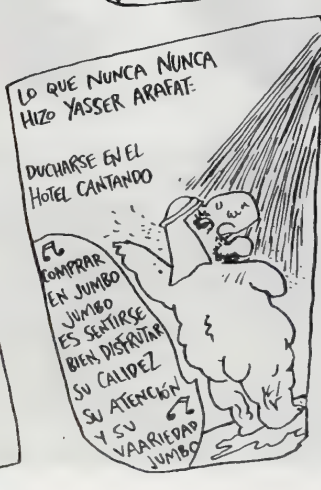 LO QUE NUNCA NUNCA
HIZO YASSER ARAFAT:
DUCHARSE EN EL
HOTEL CANTANDO
COMPRAR
EN JUMBO
JUMBO
ES SENTIRSE
BIEN, DISFRUTAR
SU CALIDEZ
SU ATENCIÓN
Y SU
VAARIEDAD
JUMBO